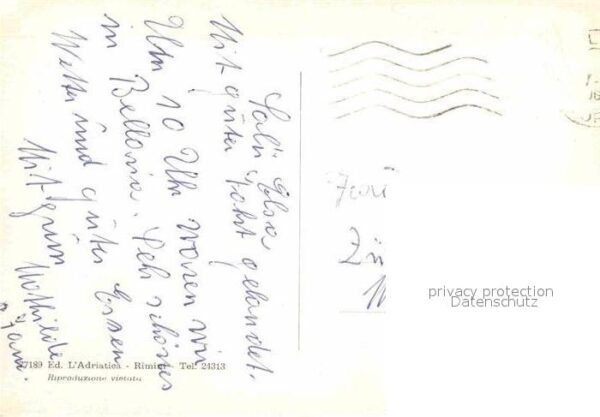 Salü Elsa
Mit guter Fahrt gelandet.
Um 10 Uhr waren wir
in Bellaria. Sehr schönes
Wetter und gutes Essen
Mit Grüss Mathilde
Zür
privacy protection
Datenschutz
7189 Ed. L'Adriatica - Rimini - Tel. 24313
Riproduzione vietata